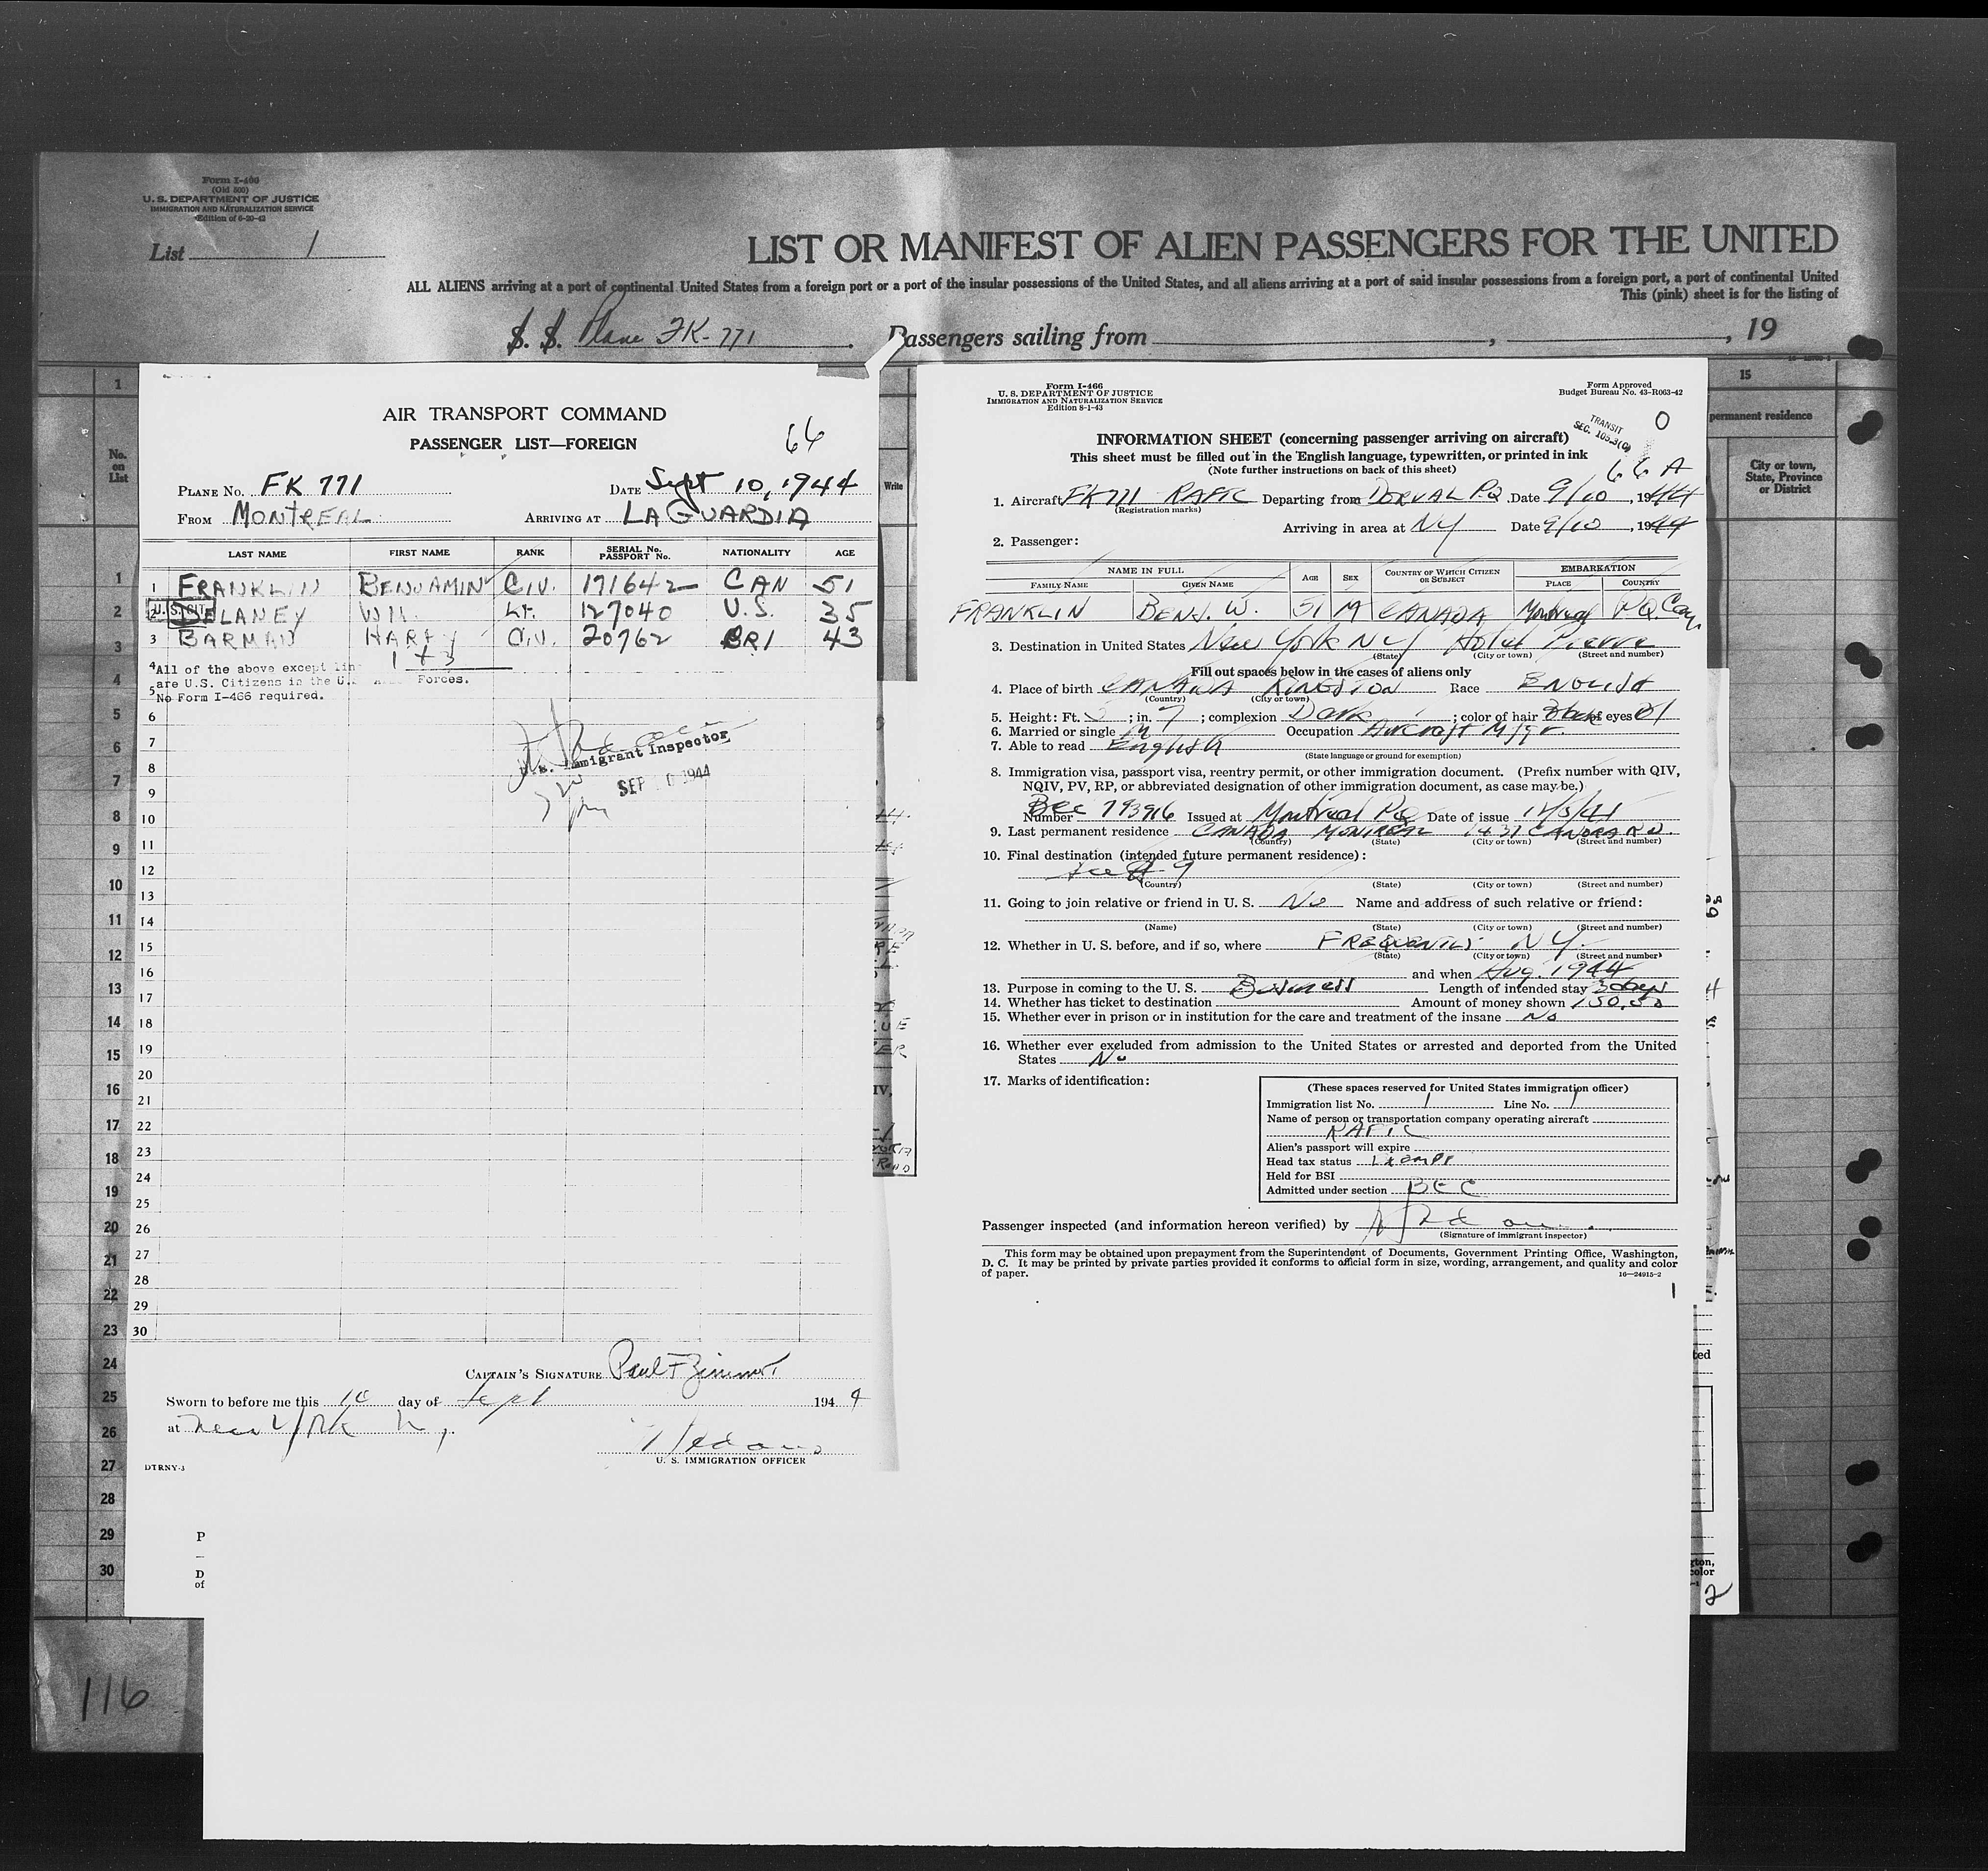 Form I-466
(Old 500)
U. S. DEPARTMENT OF JUSTICE
IMMIGRATION AND NATURALIZATION SERVICE
Edition of 6-20-42
List 1
LIST OR MANIFEST OF ALIEN PASSENGERS FOR THE UNITED
ALL ALIENS arriving at a port of continental United States from a foreign port or a port of the insular possessions of the United States, and all aliens arriving at a port of said insular possessions from a foreign port, a port of continental United
This (pink) sheet is for the listing of
S. S. Plane FK-771. Passengers sailing from , , 19
AIR TRANSPORT COMMAND
PASSENGER LIST—FOREIGN
66
PLANE NO. FK 771 DATE Sept 10, 1944
FROM MONTREAL ARRIVING AT LAGUARDIA
LAST NAME FIRST NAME RANK SERIAL No. PASSPORT No. NATIONALITY AGE
1 FRANKLIN BENJAMIN CIV. 171642 CAN 51
2 U. S. CIT. DELANEY WM. LT. 127040 U.S. 35
3 BARMAN HARRY CIV. 20762 BRI 43
4 All of the above except line 1 + 3
are U.S. Citizens in the U.S. Forces.
5 No Form I-466 required.
6
7
8
9
10
11
12
13
14
15
16
17
18
19
20
21
22
23
24
25
26
27
28
29
30
U.S. Immigrant Inspector
SEP 1944
CAPTAIN'S SIGNATURE Paul F Zimmer
Sworn to before me this 10 day of Sept 1944
at New York N.Y.
U. S. IMMIGRATION OFFICER
DTRNY-3
116
No. on List
1
2
3
4
5
6
7
8
9
10
11
12
13
14
15
16
17
18
19
20
21
22
23
24
25
26
27
28
29
30
Write
Form I-466
U. S. DEPARTMENT OF JUSTICE
IMMIGRATION AND NATURALIZATION SERVICE
Edition 8-1-43
Form Approved
Budget Bureau No. 43-R063-42
TRANSIT
SEC. 105.3(c)
0
INFORMATION SHEET (concerning passenger arriving on aircraft)
This sheet must be filled out in the English language, typewritten, or printed in ink
(Note further instructions on back of this sheet)
66 A
1. Aircraft FK771 RAFTC Departing from DORVAL PQ Date 9/10, 1944
(Registration marks)
Arriving in area at NY Date 9/10, 1944
2. Passenger:
NAME IN FULL AGE SEX COUNTRY OF WHICH CITIZEN OR SUBJECT EMBARKATION
FAMILY NAME GIVEN NAME PLACE COUNTRY
FRANKLIN BENJ. W. 51 M CANADA Montreal PQ Can.
3. Destination in United States New York NY Hotel Pierre
(State) (City or town) (Street and number)
Fill out spaces below in the cases of aliens only
4. Place of birth CANADA KINGSTON Race ENGLISH
(Country) (City or town)
5. Height: Ft. 5; in. 7; complexion Dark; color of hair Black of eyes Bl
6. Married or single M Occupation Aircraft Mfgr
7. Able to read English
(State language or ground for exemption)
8. Immigration visa, passport visa, reentry permit, or other immigration document. (Prefix number with QIV,
NQIV, PV, RP, or abbreviated designation of other immigration document, as case may be.)
Number BCC 793916 Issued at Montreal PQ Date of issue
9. Last permanent residence CANADA MONTREAL 1431
(Country) (State) (City or town) (Street and number)
10. Final destination (intended future permanent residence):
See # 9
(Country) (State) (City or town) (Street and number)
11. Going to join relative or friend in U. S. No Name and address of such relative or friend:
(Name) (State) (City or town) (Street and number)
12. Whether in U. S. before, and if so, where FREQUENTLY NY.
(State) (City or town) (Street and number)
and when Aug. 1944
13. Purpose in coming to the U. S. Business Length of intended stay 3 days
14. Whether has ticket to destination Amount of money shown 150.00
15. Whether ever in prison or in institution for the care and treatment of the insane No
16. Whether ever excluded from admission to the United States or arrested and deported from the United
States No
17. Marks of identification:
(These spaces reserved for United States immigration officer)
Immigration list No. 1 Line No. 1
Name of person or transportation company operating aircraft
RAFTC
Alien's passport will expire
Head tax status Exempt
Held for BSI
Admitted under section BCC
Passenger inspected (and information hereon verified) by
(Signature of immigrant inspector)
This form may be obtained upon prepayment from the Superintendent of Documents, Government Printing Office, Washington,
D. C. It may be printed by private parties provided it conforms to official form in size, wording, arrangement, and quality and color
of paper.
16—24915-2
1
15
permanent residence
City or town, State, Province or District
2